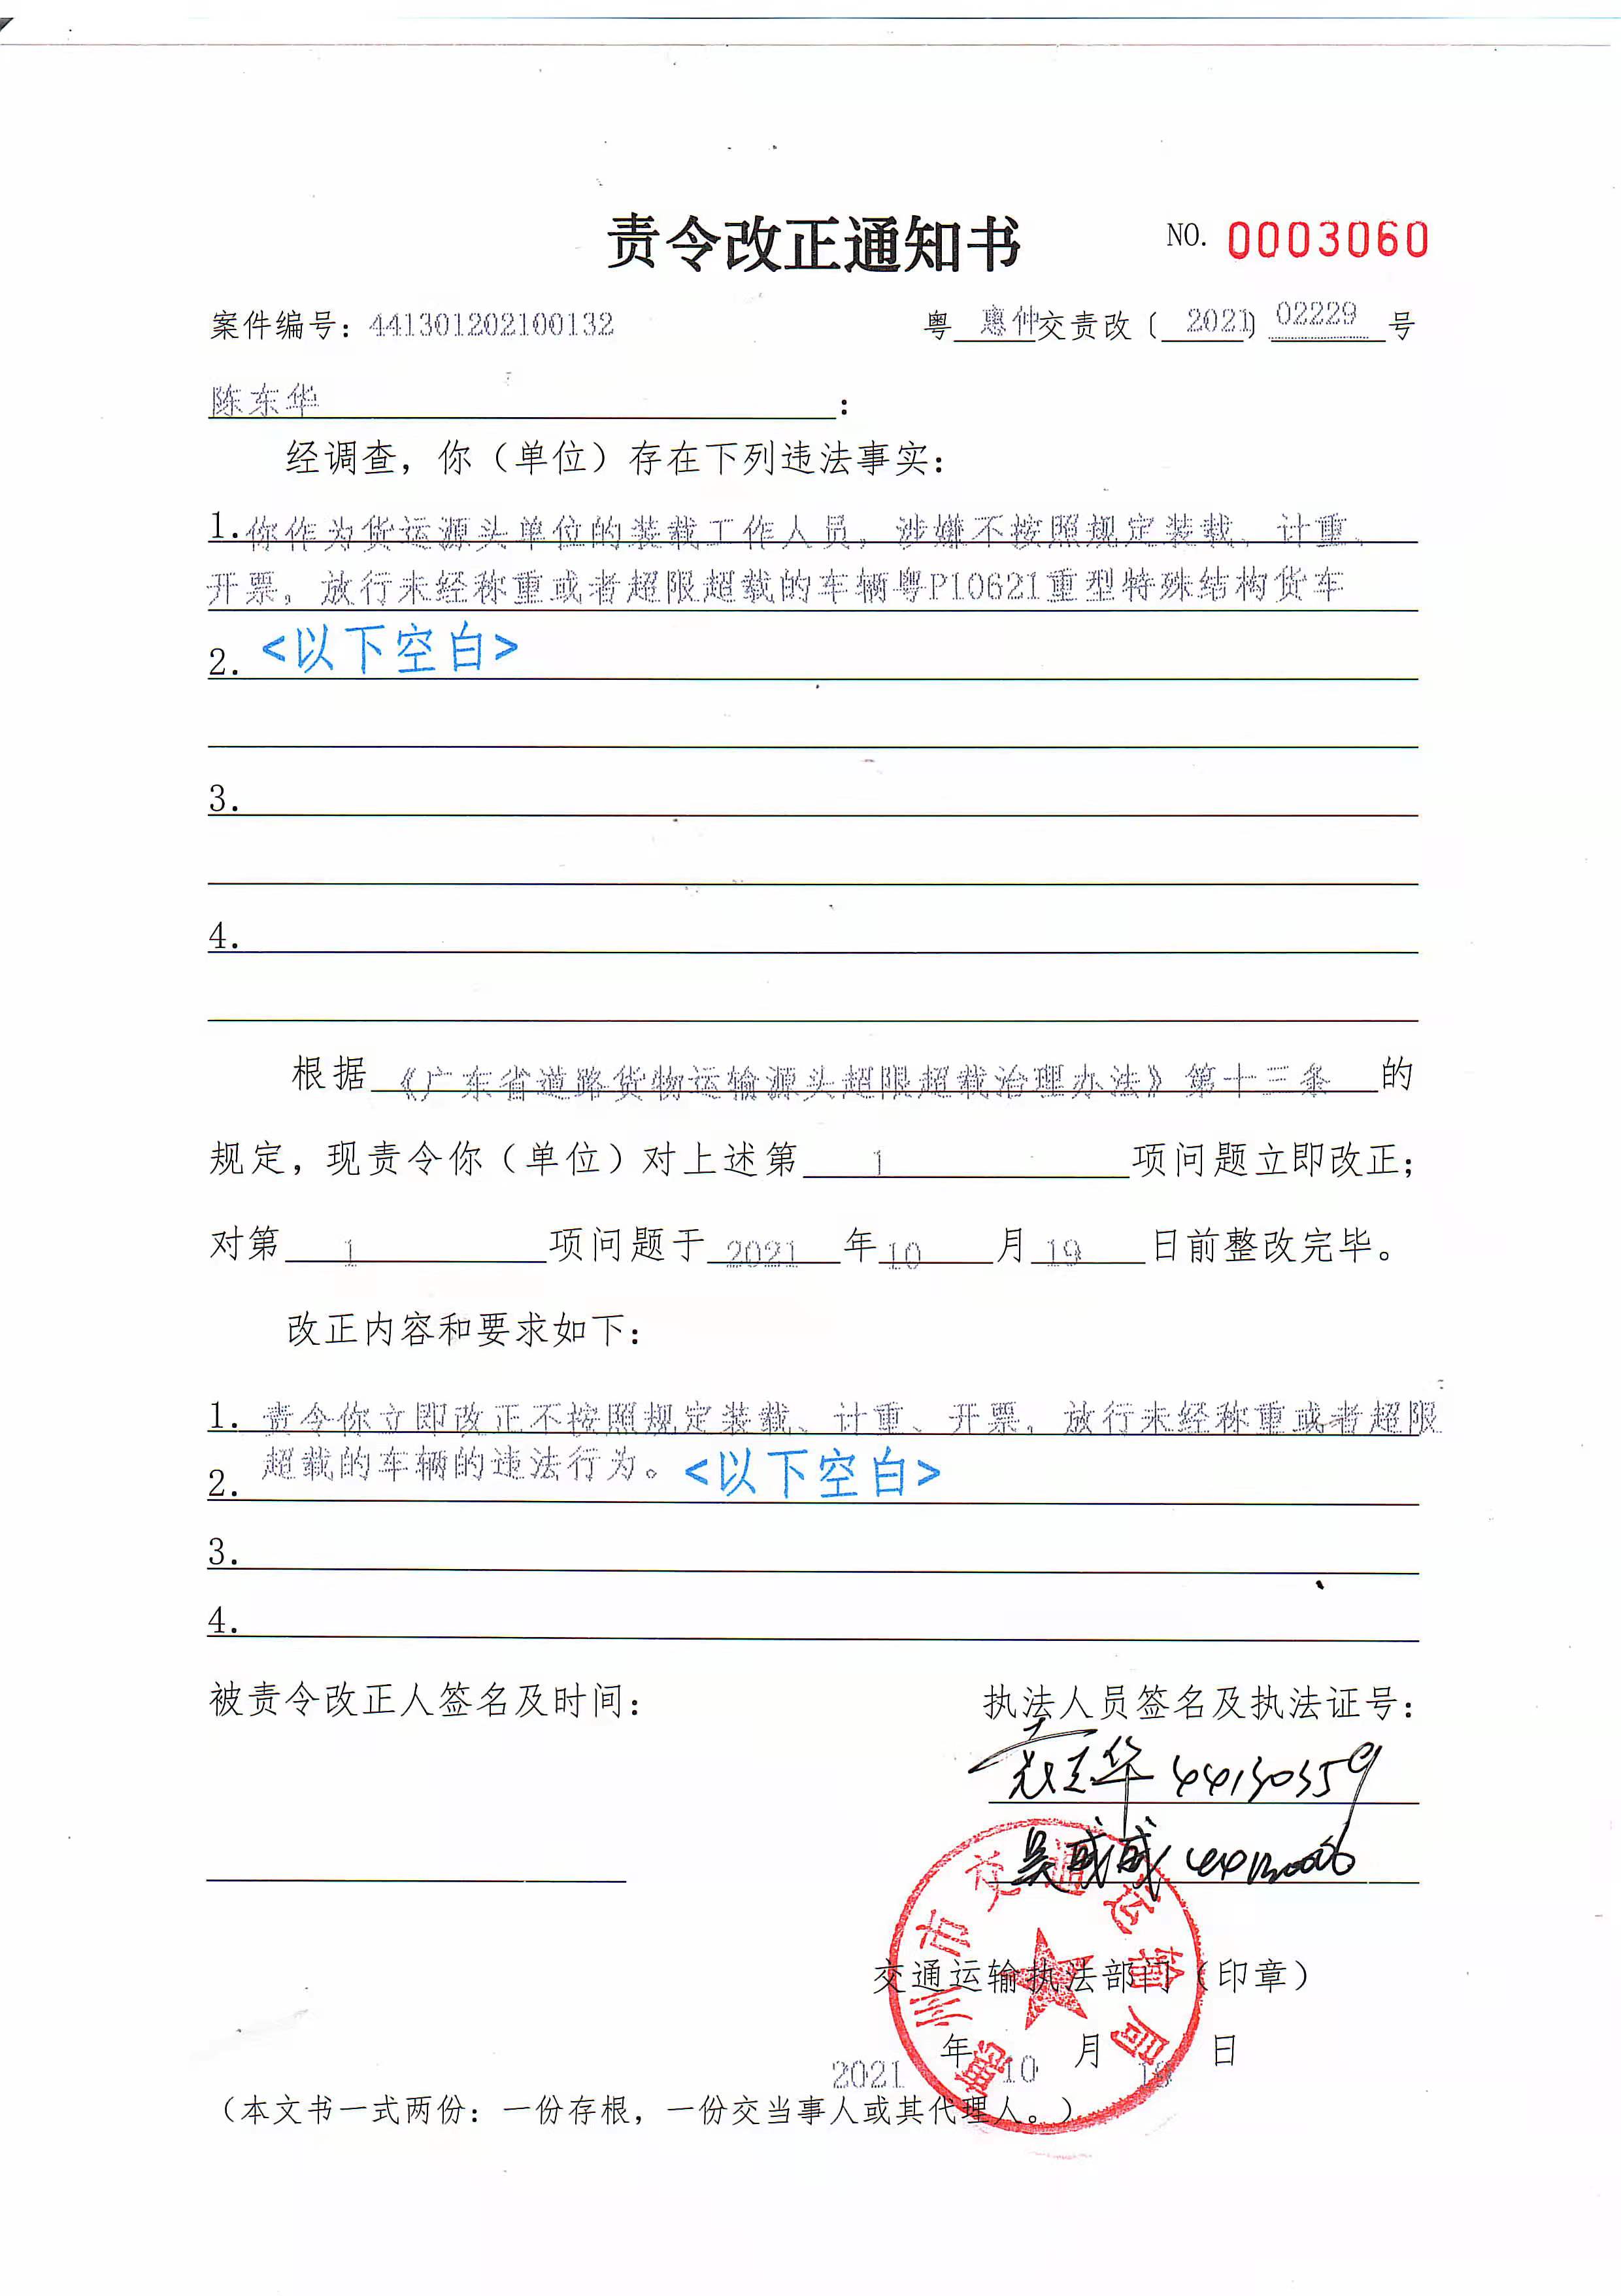 责令改正通知书 NO. 0003060
案件编号：441301202100132 粤 惠仲交责改〔 2021〕 02229 号
陈东华：
经调查，你（单位）存在下列违法事实：
1.你作为货运源头单位的装载工作人员，涉嫌不按照规定装载、计重、
开票，放行未经称重或者超限超载的车辆粤P10621重型特殊结构货车
2. <以下空白>
3.
4.
根据《广东省道路货物运输源头超限超载治理办法》第十三条 的
规定，现责令你（单位）对上述第 1 项问题立即改正；
对第 1 项问题于 2021 年 10 月 19 日前整改完毕。
改正内容和要求如下：
1. 责令你立即改正不按照规定装载、计重、开票，放行未经称重或者超限
2. 超载的车辆的违法行为。<以下空白>
3.
4.
被责令改正人签名及时间： 执法人员签名及执法证号：
华 44130359
吴威威
惠州市交通运输局
交通运输执法部门（印章）
2021 年 10 月 18 日
（本文书一式两份：一份存根，一份交当事人或其代理人。）